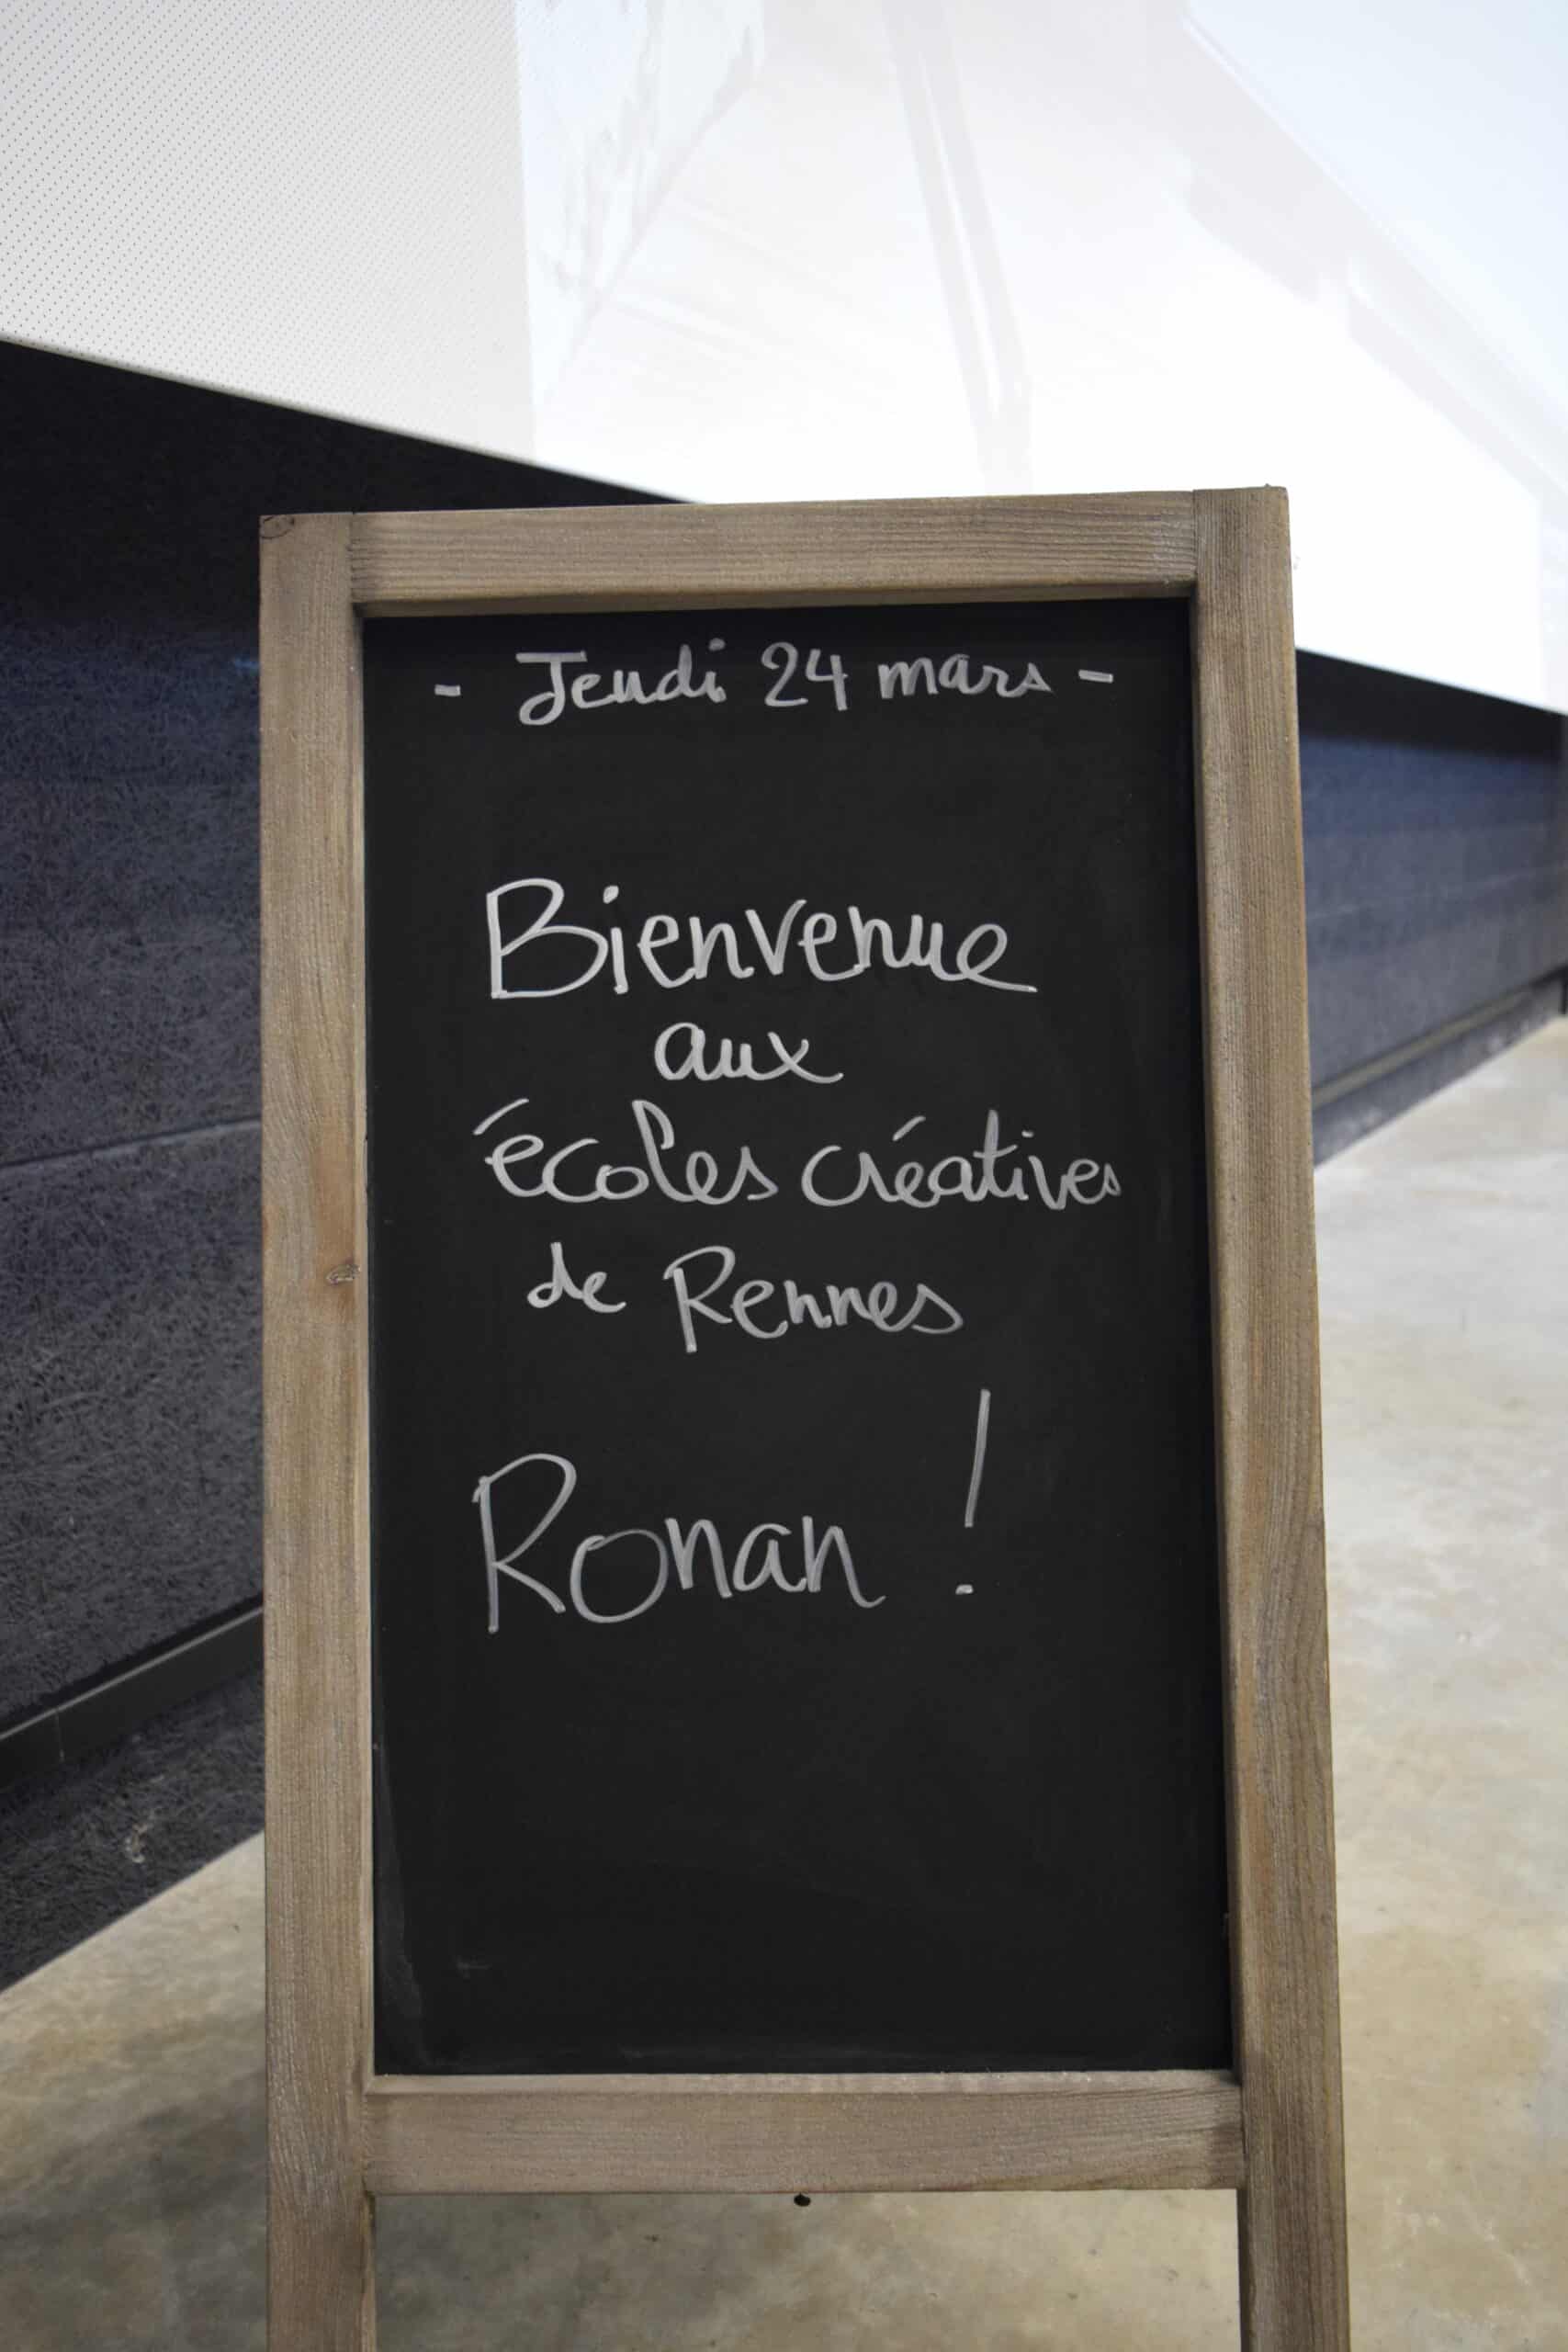 - Jeudi 24 mars -
Bienvenue
aux
écoles créatives
de Rennes
Ronan !